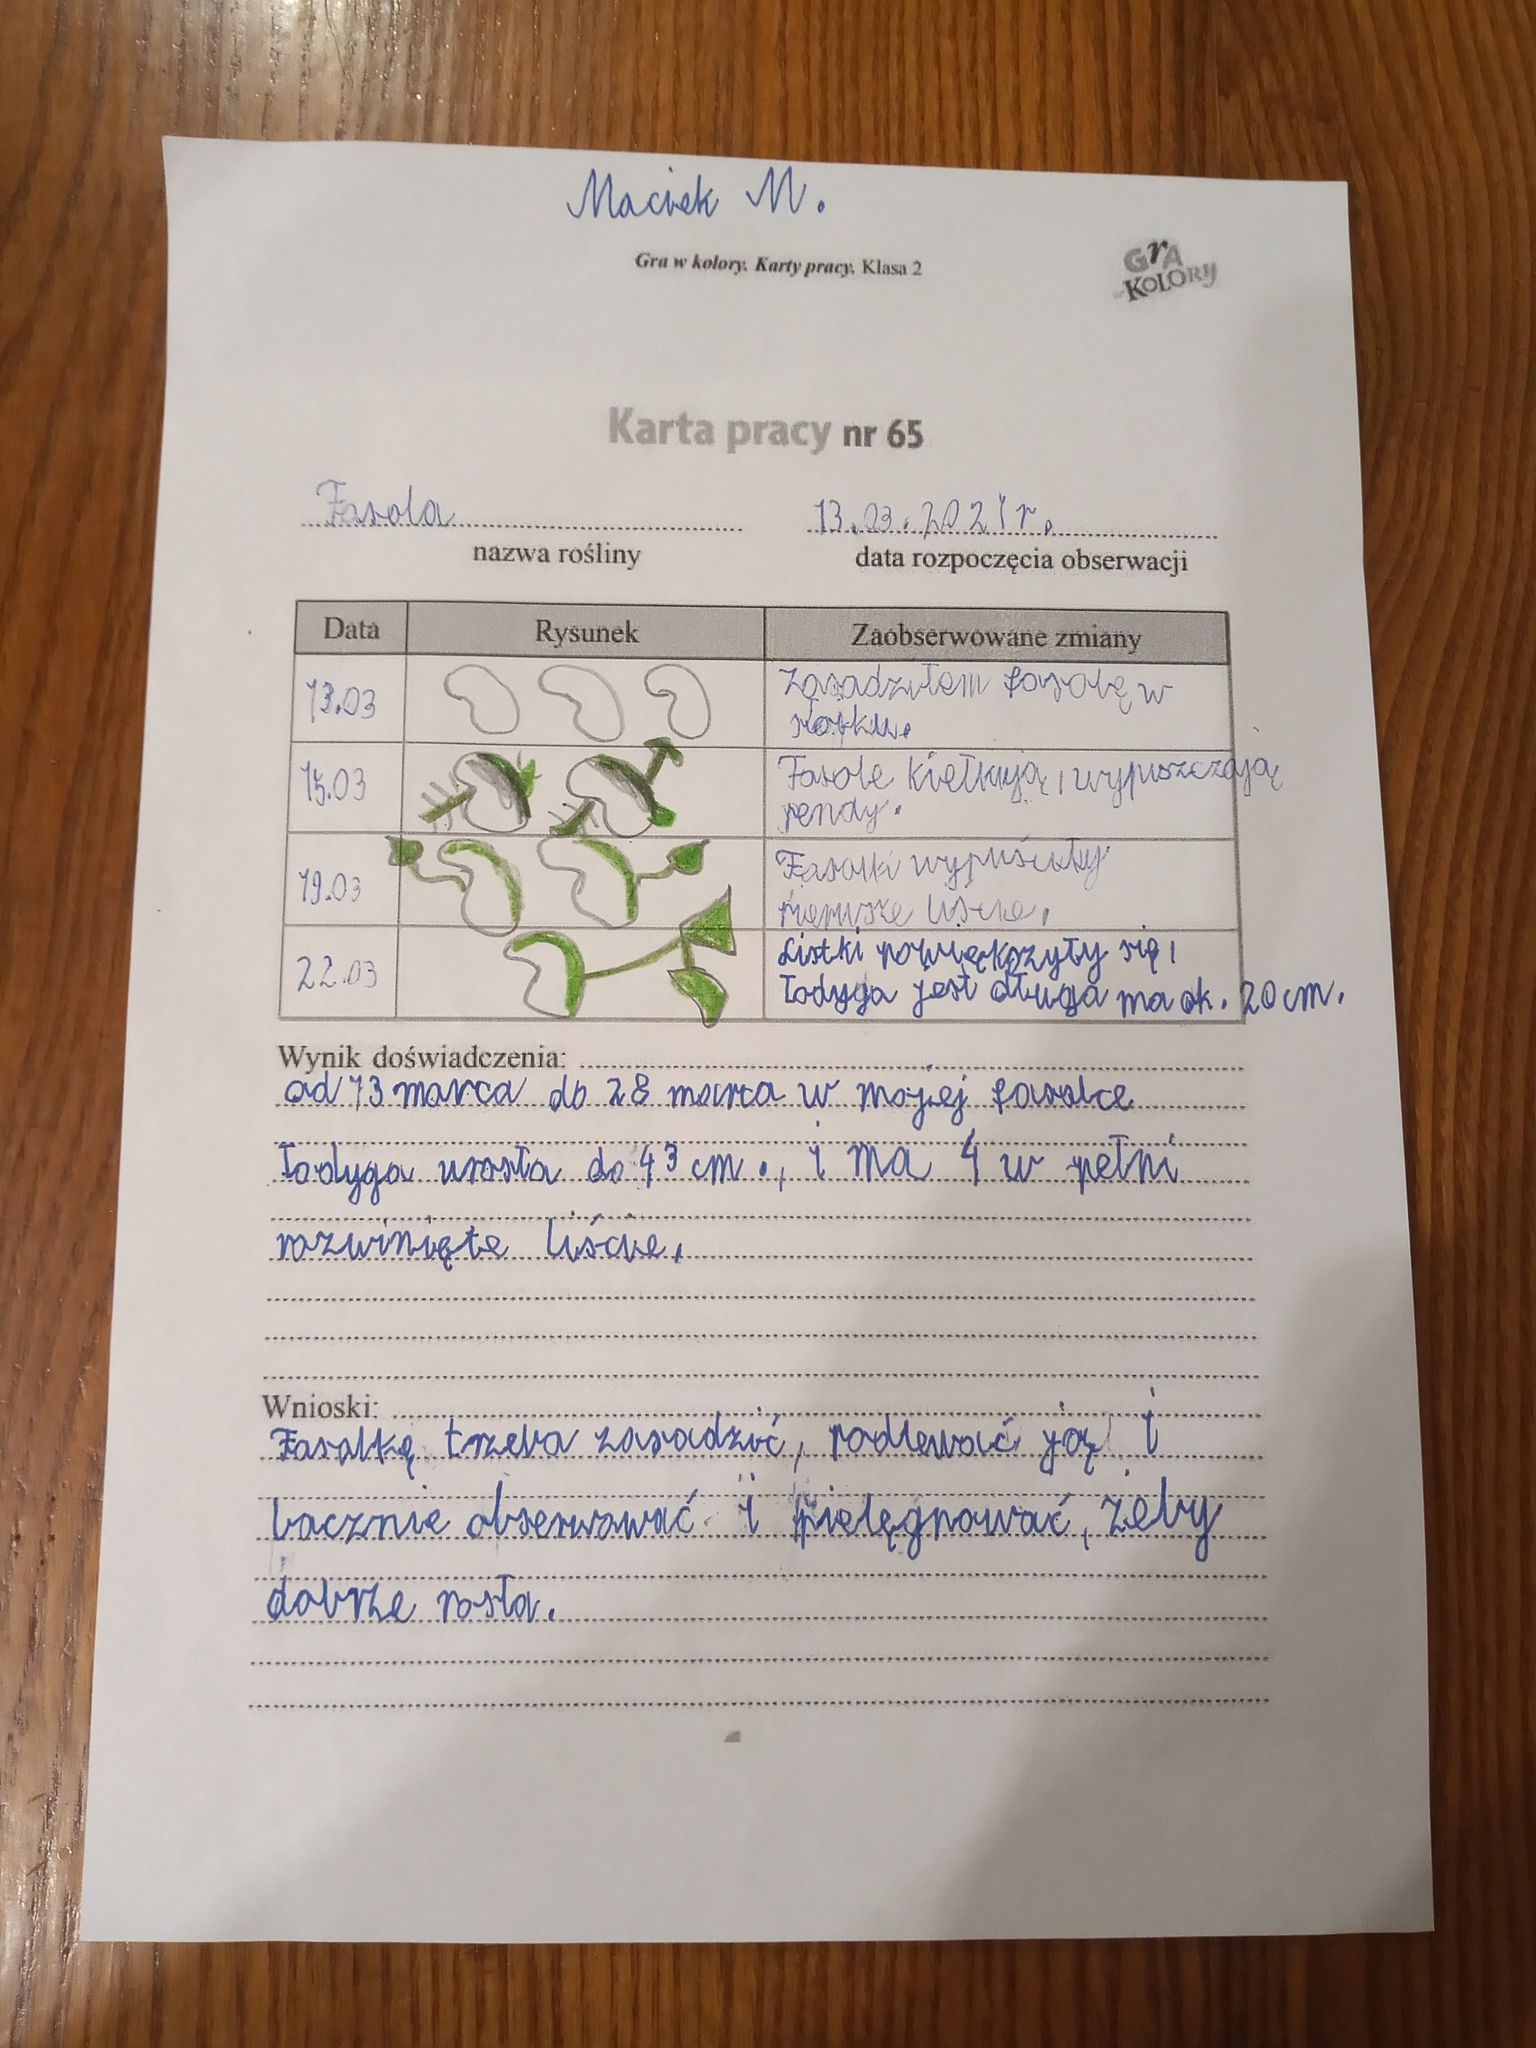 Maciek M.
Gra w kolory. Karty pracy. Klasa 2
GrA
w KOLORY
Karta pracy nr 65
Fasola
13.03.2021r.
nazwa rośliny
data rozpoczęcia obserwacji
Data
Rysunek
Zaobserwowane zmiany
13.03
Zasadziłem fasolę w
słoiku.
15.03
Fasole kiełkują, wypuszczają
pendy.
19.03
Fasolki wypuściły
pierwsze liście.
22.03
Listki powiększyły się,
łodyga jest długa ma ok. 20 cm.
Wynik doświadczenia:
od 13 marca do 28 marca w mojej fasolce
łodyga urosła do 43 cm., i ma 4 w pełni
rozwinięte liście.
Wnioski:
Fasolkę trzeba zasadzić, podlewać ją i
bacznie obserwować i pielęgnować, żeby
dobrze rosła.